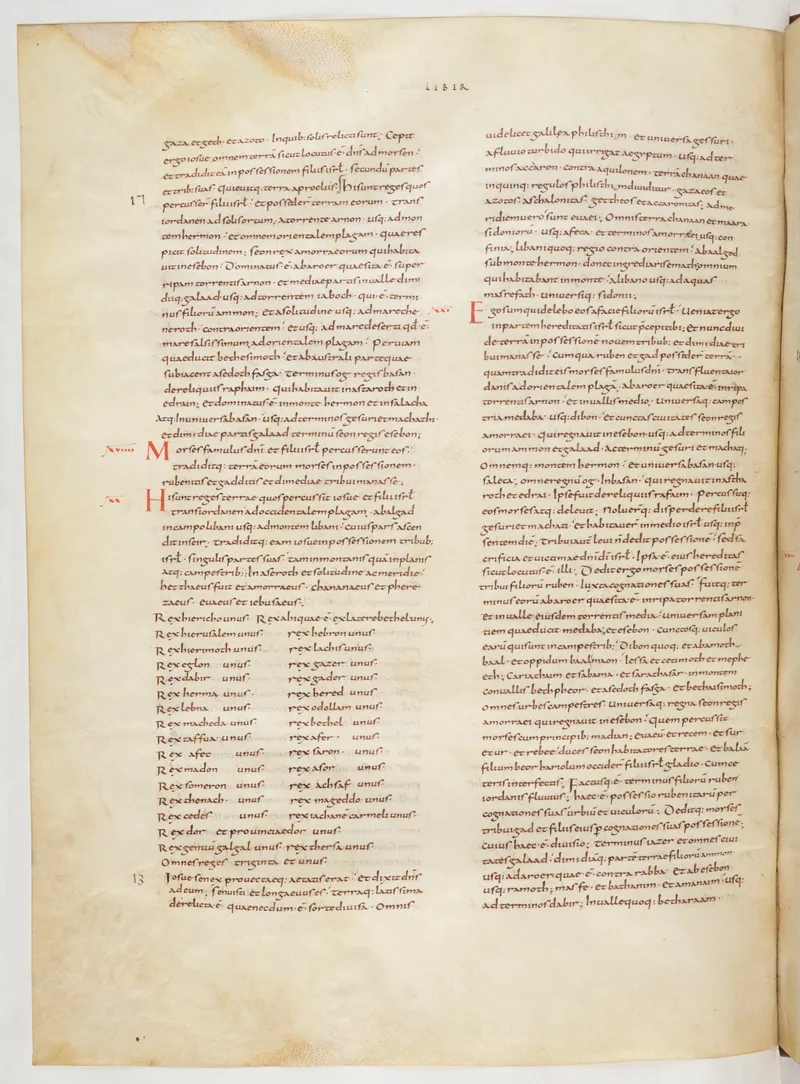 LIBER
gaza et geth · et azoto · In quib: solis relicti sunt; Cepit
ergo iosue omnem terrā sicut locutus ē dns ad mosen ·
et tradidit eā in possessionem filiis isrl · secundū partes
et trib: suas quieuitq: terra a proeliis; Hi sunt reges quos
17
percusser filii isrl · et posseder terram eorum · trans
iordanen ad solis ortum; A torrente arnon · usq: ad mon
tem hermon · et omnem orientalem plagam · quae res
picit solitudinem; seon rex amorraeorum qui habita
uit in esebon · Dominatus ē · ab aroer quae sita ē · super
ripam torrentis arnon · et mediae partis in ualle dimi
diiq: galaad usq: ad torrentem iaboch · qui · ē · termi
nus filiorū ammon; et a solitudine usq: ad mare che
neroth · contra orientem · et usq: ad mare deserti qd · ē ·
mare salsissimum ad orientalem plagam · Per uiam
quae ducit bethesimoth · et ab australi parte quae
subiacent asedoth fasga · terminus og · regis basan ·
de reliquiis raphaim · qui habitauit in astaroth et in
edrain; et dominatus ē · in monte hermon et in salacha
atq: In uniuersa basan · usq: ad terminos gesuri et machathi ·
et dimidiae partis galaad terminū seon regis esebon;
xviiii
Moses famulus dni et filii isrl percusserunt eos ·
tradiditq: terrā eorum moses in possessionem ·
rubenitis et gadditis et dimediae tribui manasse;
xx
Hi sunt reges terrae quos percussit iosue et filii isrl
trans iordanen ad occidentalem plagam · abalgad
in campo libani usq: ad montem libani · cuius pars ascen
dit in seir; tradiditq: eam iosue in possessionem tribub;
isrl · singulis partes suas · tam in montanis quā in planis
atq: campestrib; · In aseroth et solitudine ac meridie ·
hetthaeus fuit et amorraeus · chananaeus et phere
zaeus · euaeus et iebusaeus;
Rex hiericho unus · Rex ahi quae · ē · ex latere bethel unus ·
Rex hierusalem unus · rex hebron unus ·
Rex hierimoth unus · rex lachis unus ·
Rex eglon unus · rex gazer unus ·
Rex dabir unus · rex gader unus ·
Rex herma unus · rex hered unus ·
Rex lebna unus · rex odollam unus ·
Rex maceda unus · rex bethel unus ·
Rex taffua unus · rex afer · unus ·
Rex afec unus · rex saron · unus ·
Rex madon unus · rex asor unus ·
Rex someron unus · rex achsaf unus ·
Rex thenach · unus · rex mageddo unus ·
Rex cedes unus · rex iachane carmeli unus ·
Rex dor et prouinciae dor unus ·
Rex gentiū galgal unus · rex thersa unus ·
Omnes reges triginta et unus ·
13
Iosue senex prouectaeq: aetatis erat · et dixit dns
ad eum; senuisti et longaeuus es · terraq: latissima
derelicta ē · quae necdum · ē · sorte diuisa · Omnis
uidelicet galilea philisthiim · et uniuersa gessuri ·
a fluuio turbido qui irrigat aegyptum · usq: ad ter
minos accaron · contra aquilonem · terra chanaan quae
in quinq: regulos philisthiim diuiditur · gazaeos et
azotios ascalonitas · gettheos et accaronitas; ad me
ridiem uero sunt euaei; Omnis terra chanaan et maara
sidoniorū · usq: afeca · et terminos amorraei usq: con
finia; libani quoq: regio contra orientem · a baalgad
sub monte hermon · donec ingrediaris emath; omnium
qui habitabant in monte · a libano usq: ad aquas
masrefoth · uniuersiq: sidonii;
xxi
Ego sum qui delebo eos a facie filiorū isrl · Ueniat ergo
in partem hereditatis isrl sicut pcepi tibi; et nunc diui
de terrā in possessione nouem tribub; et dimidiae tri
bui manasse · Cum qua ruben et gad posseder terrā ·
quam tradidit eis moses famulus dni · trans fluenta ior
danis ad orientalem plagā · ab aroer quae sita ē in ripa
torrentis arnon · et in uallis medio · Uniuersaq: campes
tria medaba · usq: dibon · et cunctas ciuitates seon regis
amorraei · qui regnauit in esebon · usq: ad terminos fili
orum ammon et galaad · ac terminū gesuri et machati;
Omnemq: montem hermon · et uniuersā basan · usq:
saleca; omne regnū og · In basan · qui regnauit in astha
roth et edrai · Ipse fuit de reliquiis rafaim · Percussitq:
eos moses atq: deleuit; Nolueruntq: disperdere filii isrl
gesuri et machati · et habitauer in medio isrl · usq: in p
sentem diē; Tribui autē leui n̄ dedit possessionē · sed sa
crificia et uictimae dni dī isrl · Ipsa · ē · eius hereditas
sicut locutus ē · illi; Dedit ergo moses possessionem
tribui filiorū ruben · Iuxta cognationes suas · fuitq; ter
minus eorū ab aroer quae sita · ē · in ripa torrentis arnon ·
et in ualle eiusdem torrentis media · uniuersam plani
tiem quae ducit medaba; et esebon · cunctosq; uiculos
earū qui sunt in campestrib; · Dibon quoq; et bamoth
baal · et oppidum baalmaon · Iessa et cedmoth et mephe
eth; Cariathaim et sabama · et sarathasar in montem
conuallis bethpheor · et asedoth fasga · et bethaisimoth;
omnes urbes campestres · Uniuersaq: regna seon regis
amorraei qui regnauit in esebon · quem percussit
moses cum principib; madian; euaeū et recem · et sur
et ur · et rebee · duces seon habitatores terrae · et balaā
filium beor hariolum occider filii isrl gladio · Cum ce
teris interfectis; Factusq: ē · terminus filiorū ruben
iordanis fluuius; haec ē possessio rubenitarū per
cognationes suas urbiū et uiculorū; Deditq: moses
tribui gad et filiis eius p cognationes suas possessionē;
Cuius haec · ē · diuisio; Terminus iazer et omnes ciui
tates galaad · dimidiāq: partē terrae filiorū ammon
usq: ad aroer quae · ē · contra rabba · et ab esebon
usq: ramoth; masfe · et bathanim · et a manaim · usq:
ad terminos dabir; In ualle quoq: betharaam ·